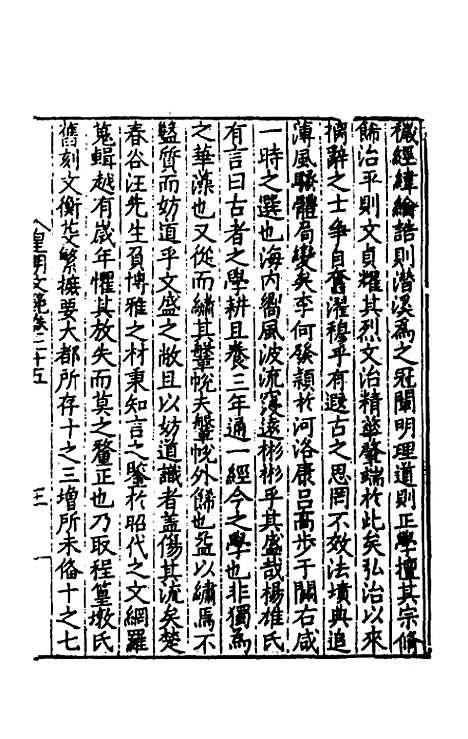 穢經緯綸誥則潛溪為之冠闡明理道則正學擅其宗脩
飾治平則文貞耀其烈文治精華發端於此矣弘治以來
摛辭之士爭自奮濯穆乎有遐古之思罔不效法墳典追
薄風騷體局變矣李何發穎於河洛康呂高步于關右咸
一時之選也海内嚮風波流寖遠彬彬乎其盛哉楊雄氏
有言曰古者之學耕且養三年通一經今之學也非獨為
之華藻也又從而繡其鞶帨夫鞶帨外餙也盜以繡焉不
質而妨道乎文盛之敝且以妨道識者蓋傷其流矣楚
春谷汪先生負博雅之材秉知言之鑒於昭代之文網羅
蒐輯越有歲年懼其放失而莫之釐正也乃取程篁墩氏
舊刻文衡芟繁摭要大都所存十之三增所未俻十之七
皇明文範卷二十五
三